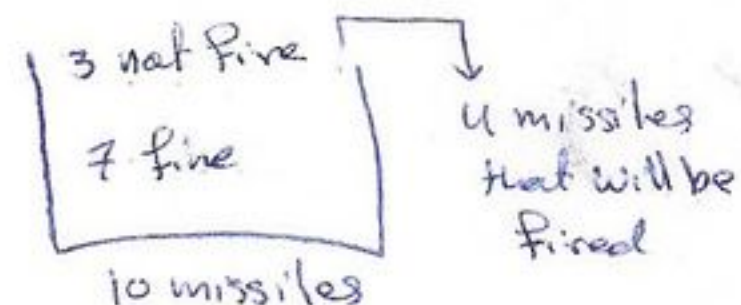 3 not fire
7 fire
10 missiles
4 missiles
that will be
fired